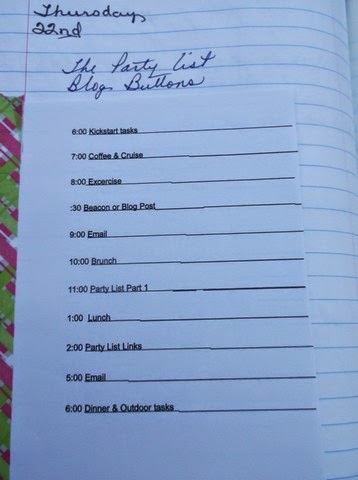 Thursday
22nd
The Party List
Blog Buttons
6:00 Kickstart tasks
7:00 Coffee & Cruise
8:00 Excercise
:30 Beacon or Blog Post
9:00 Email
10:00 Brunch
11:00 Party List Part 1
1:00 Lunch
2:00 Party List Links
5:00 Email
6:00 Dinner & Outdoor tasks